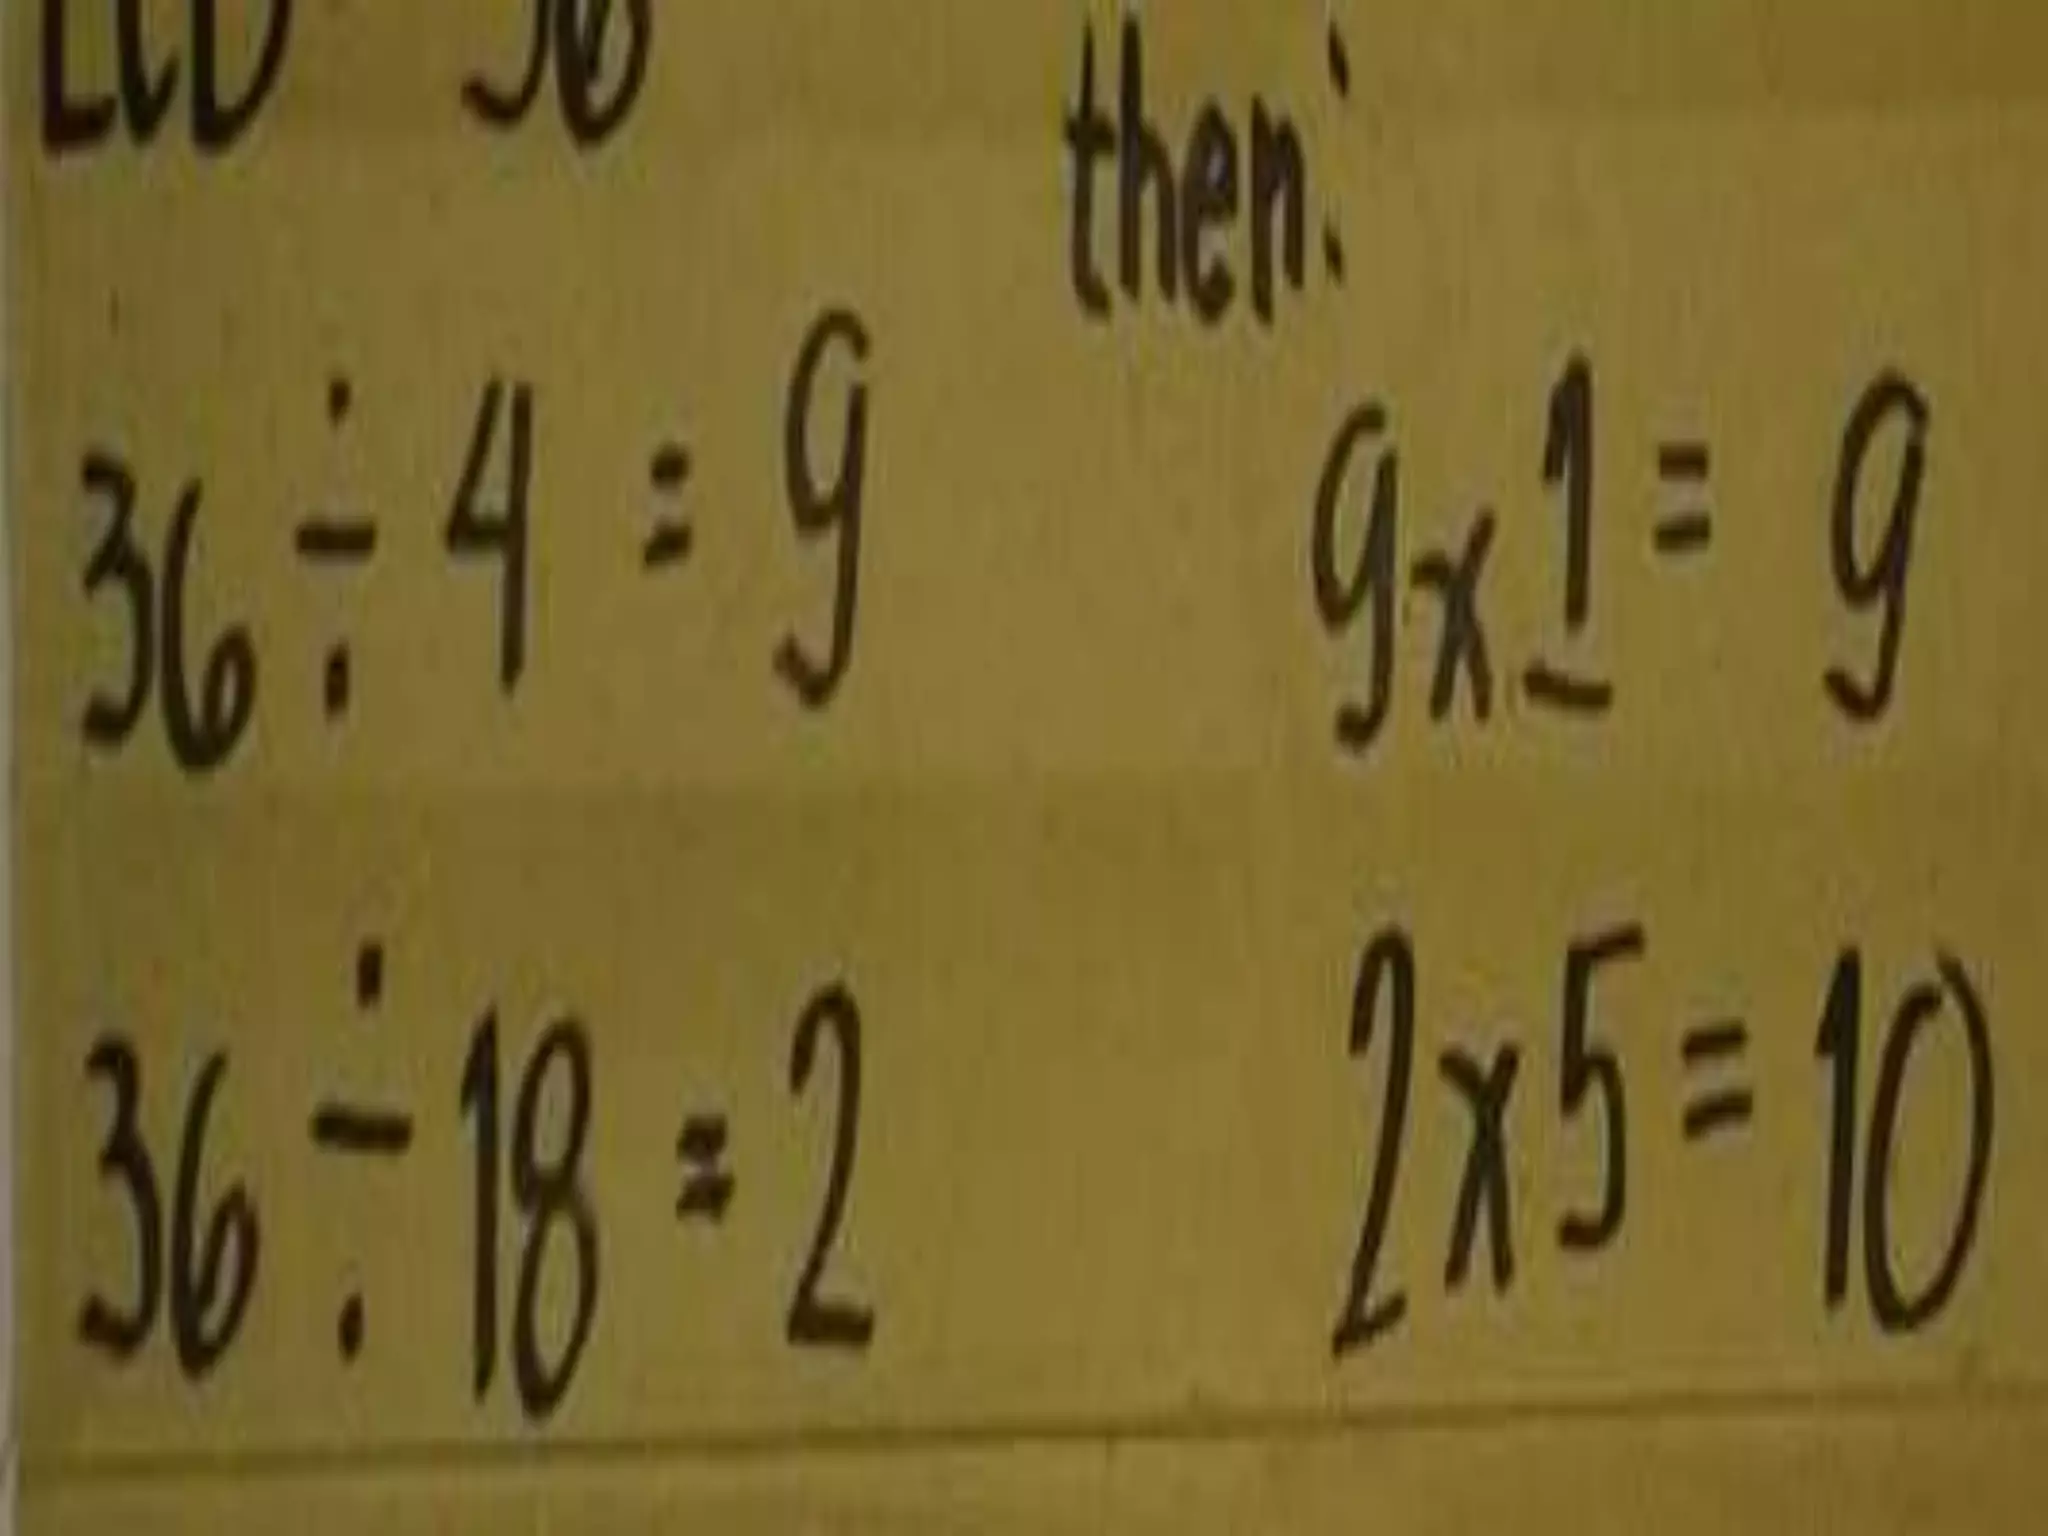 LCD 36
then:
36 ÷ 4 = 9 9 x 1 = 9
36 ÷ 18 = 2 2 x 5 = 10